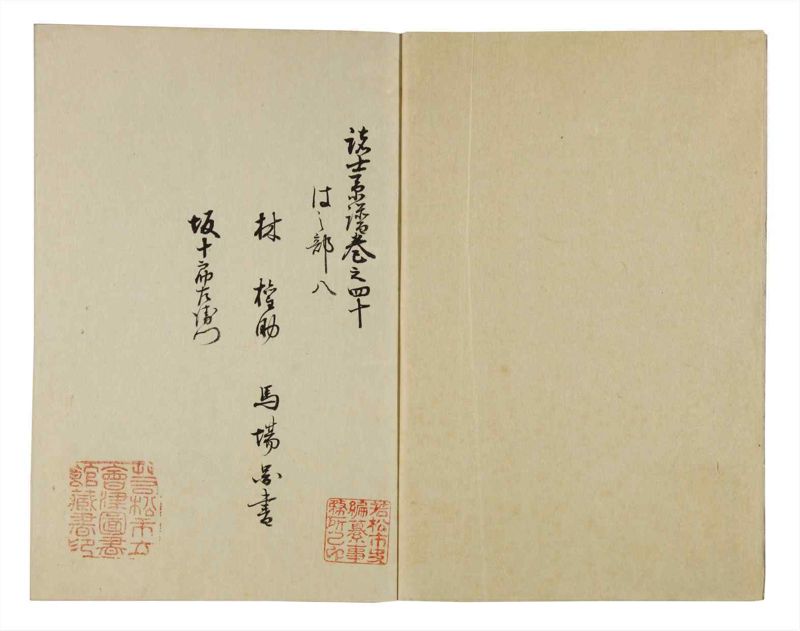 諸士系譜巻之四十
は之部八
林 権助 馬場図書
坂十郎左衛門
若松市史
編纂事
務所之印
若松市立
會津圖書
館藏書印